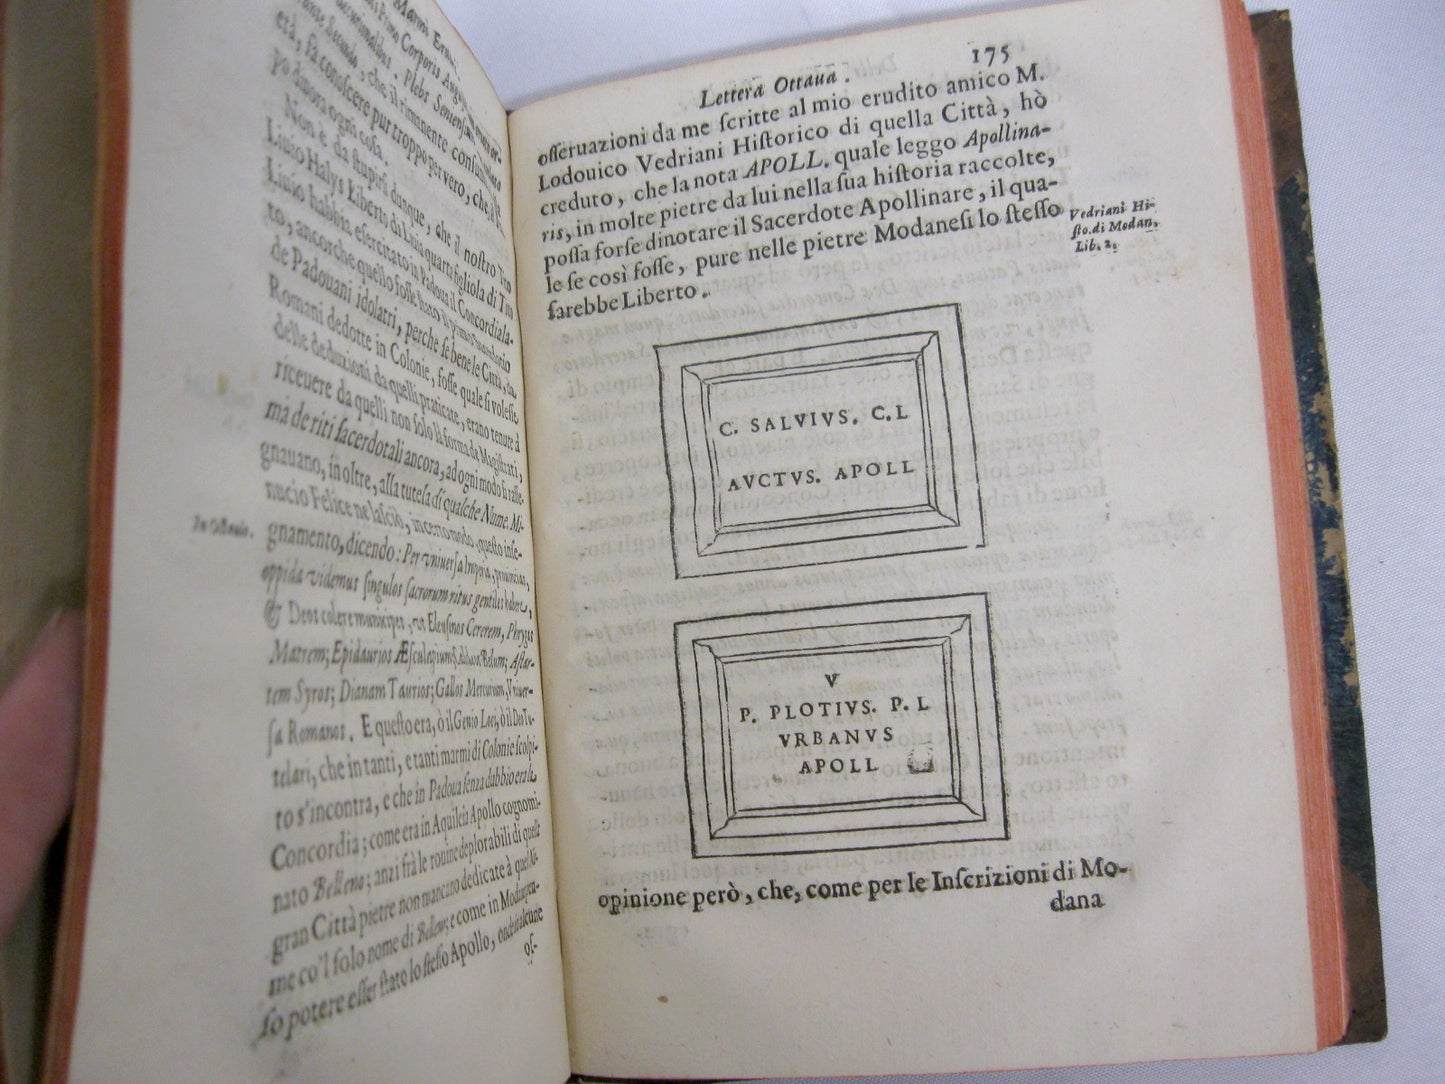 Marmi Eru
Corporis
Plebs
Secundo, che il rimanente
età, fà conoscere pur troppo per vero, che
po divora ogni cosa.
Non è da stupirsi dunque, che il nostro Tito
Liuio Halys Liberto di Liuia quarta figliola di Tito
Liuio habbia esercitato in Padoua il Concordiala-
to, ancorche quello fosse stato il primo
de Padouani idolatri, perche se bene le Città, da
Romani dedotte in Colonie, fosse qual si volesse
delle deduzioni da quelli praticate, erano tenute à
riceuere da quelli non solo la forma de Magistrati,
mà de riti sacerdotali ancora, ad ogni modo si rasse-
gnauano, in oltre, alla tutela di qualche Nume. Mi-
nucio Felice ne lasciò, in certo modo, questo inse-
gnamento, dicendo: Per vniuersa Imperia, prouincias,
oppida videmus singulos sacrorum ritus gentiles habere,
& Deos colere municipes, vt Eleusinos Cererem, Phrygas
Matrem; Epidaurios Æsculapium; Chaldæos Belum; Astar-
tem Syros; Dianam Taurios; Gallos Mercurium, Vniuer-
sa Romanos. E questo era, ò il Genio Loci, ò il Deo Tu-
telari, che in tanti, e tanti marmi di Colonie scolpi-
to s'incontra, e che in Padoua senza dubbio era la
Concordia; come era in Aquileia Apollo cognomi-
nato Belleno; anzi frà le rouine deplorabili di quella
gran Città pietre non mancano dedicate à quel Nu-
me co'l solo nome di Belleno; e come in Modana pen-
so potere esser stato lo stesso Apollo, onde in alcune
os-
In Octauio.
Lettera Ottaua. 175
osseruazioni da me scritte al mio erudito amico M.
Lodouico Vedriani Historico di quella Città, hò
creduto, che la nota APOLL. quale leggo Apollina-
ris, in molte pietre da lui nella sua historia raccolte,
possa forse dinotare il Sacerdote Apollinare, il qua-
le se così fosse, pure nelle pietre Modanesi lo stesso
sarebbe Liberto.
Vedriani Hi-
sto. di Modan.
Lib. 2.
C. SALVIVS. C. L
AVCTVS. APOLL
V
P. PLOTIVS. P. L
VRBANVS
APOLL
opinione però, che, come per le Inscrizioni di Mo-
dana